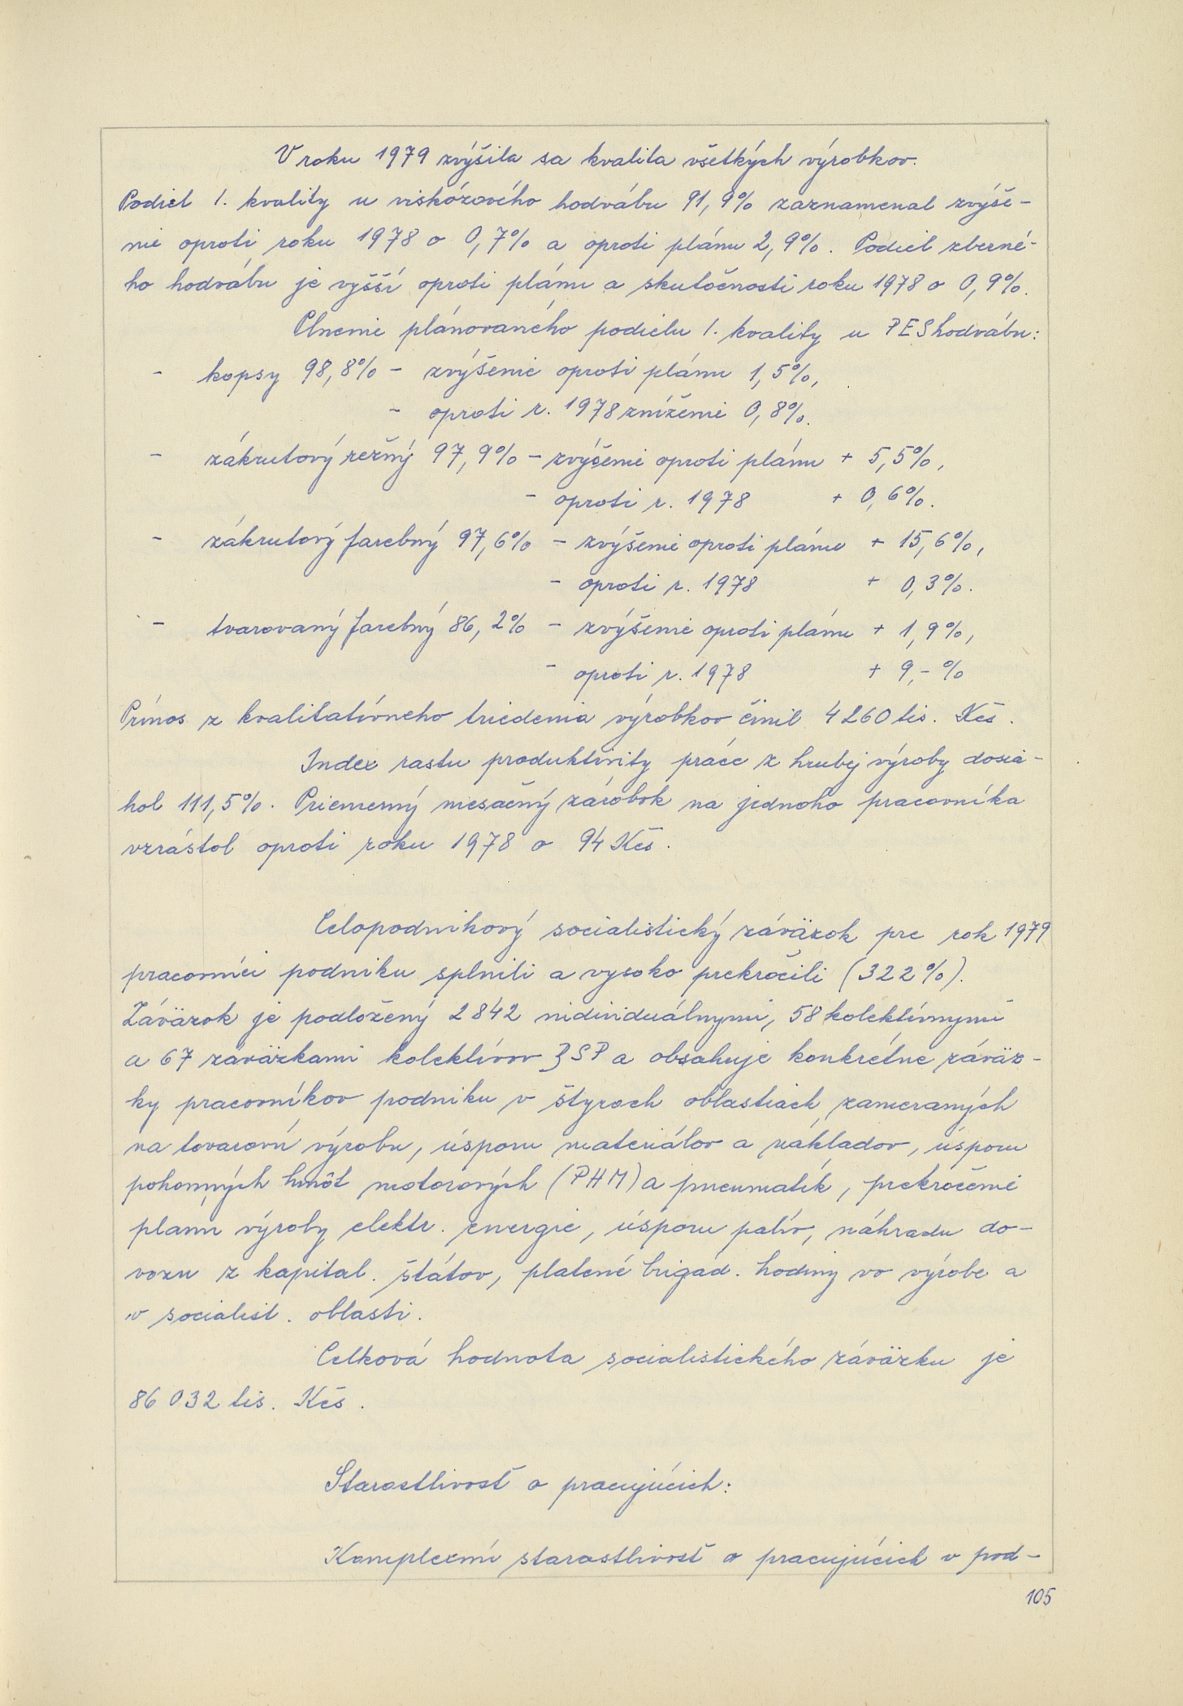 V roku 1979 zvýšila sa kvalita všetkých výrobkov.
Podiel 1. kvality u viskózového hodvábu 91,9% zaznamenal zvýše-
nie oproti roku 1978 o 0,7% a oproti plánu 2,9%. Podiel zberné-
ho hodvábu je vyšší oproti plánu a skutočnosti roku 1978 o 0,9%.
Plnenie plánovaného podielu 1. kvality u PES hodvábu:
- kopsy 98,8% - zvýšenie oproti plánu 1,5%,
- oproti r. 1978 zníženie 0,8%.
- zákrutový režný 97,9% - zvýšenie oproti plánu + 5,5%,
- oproti r. 1978 + 0,6%.
- zákrutový farebný 97,6% - zvýšenie oproti plánu + 15,6%,
- oproti r. 1978 + 0,3%.
- tvarovaný farebný 86,2% - zvýšenie oproti plánu + 1,9%,
- oproti r. 1978 + 9,- %
Prínos z kvalitatívneho triedenia výrobkov činil 4 260 tis. Kčs.
Index rastu produktivity práce z hrubej výroby dosia-
hol 111,5%. Priemerný mesačný zárobok na jednoho pracovníka
vzrástol oproti roku 1978 o 94 Kčs.
Celopodnikový socialistický záväzok pre rok 1979
pracovníci podniku splnili a vysoko prekročili (322%).
Záväzok je podložený 2 842 individuálnymi, 58 kolektívnymi
a 67 záväzkami kolektívov BSP a obsahuje konkrétne záväz-
ky pracovníkov podniku v štyroch oblastiach zameraných
na tovarovú výrobu, úsporu materiálov a nákladov, úsporu
pohonných hmôt motorových (PHM) a pneumatík, prekročenie
plánu výroby elektr. energie, úsporu palív, náhradu do-
vozu z kapital. štátov, platené brigád. hodiny vo výrobe a
v socialist. oblasti.
Celková hodnota socialistického záväzku je
86 032 tis. Kčs.
Starostlivosť o pracujúcich:
Komplexní starostlivosť o pracujúcich v pod-
105